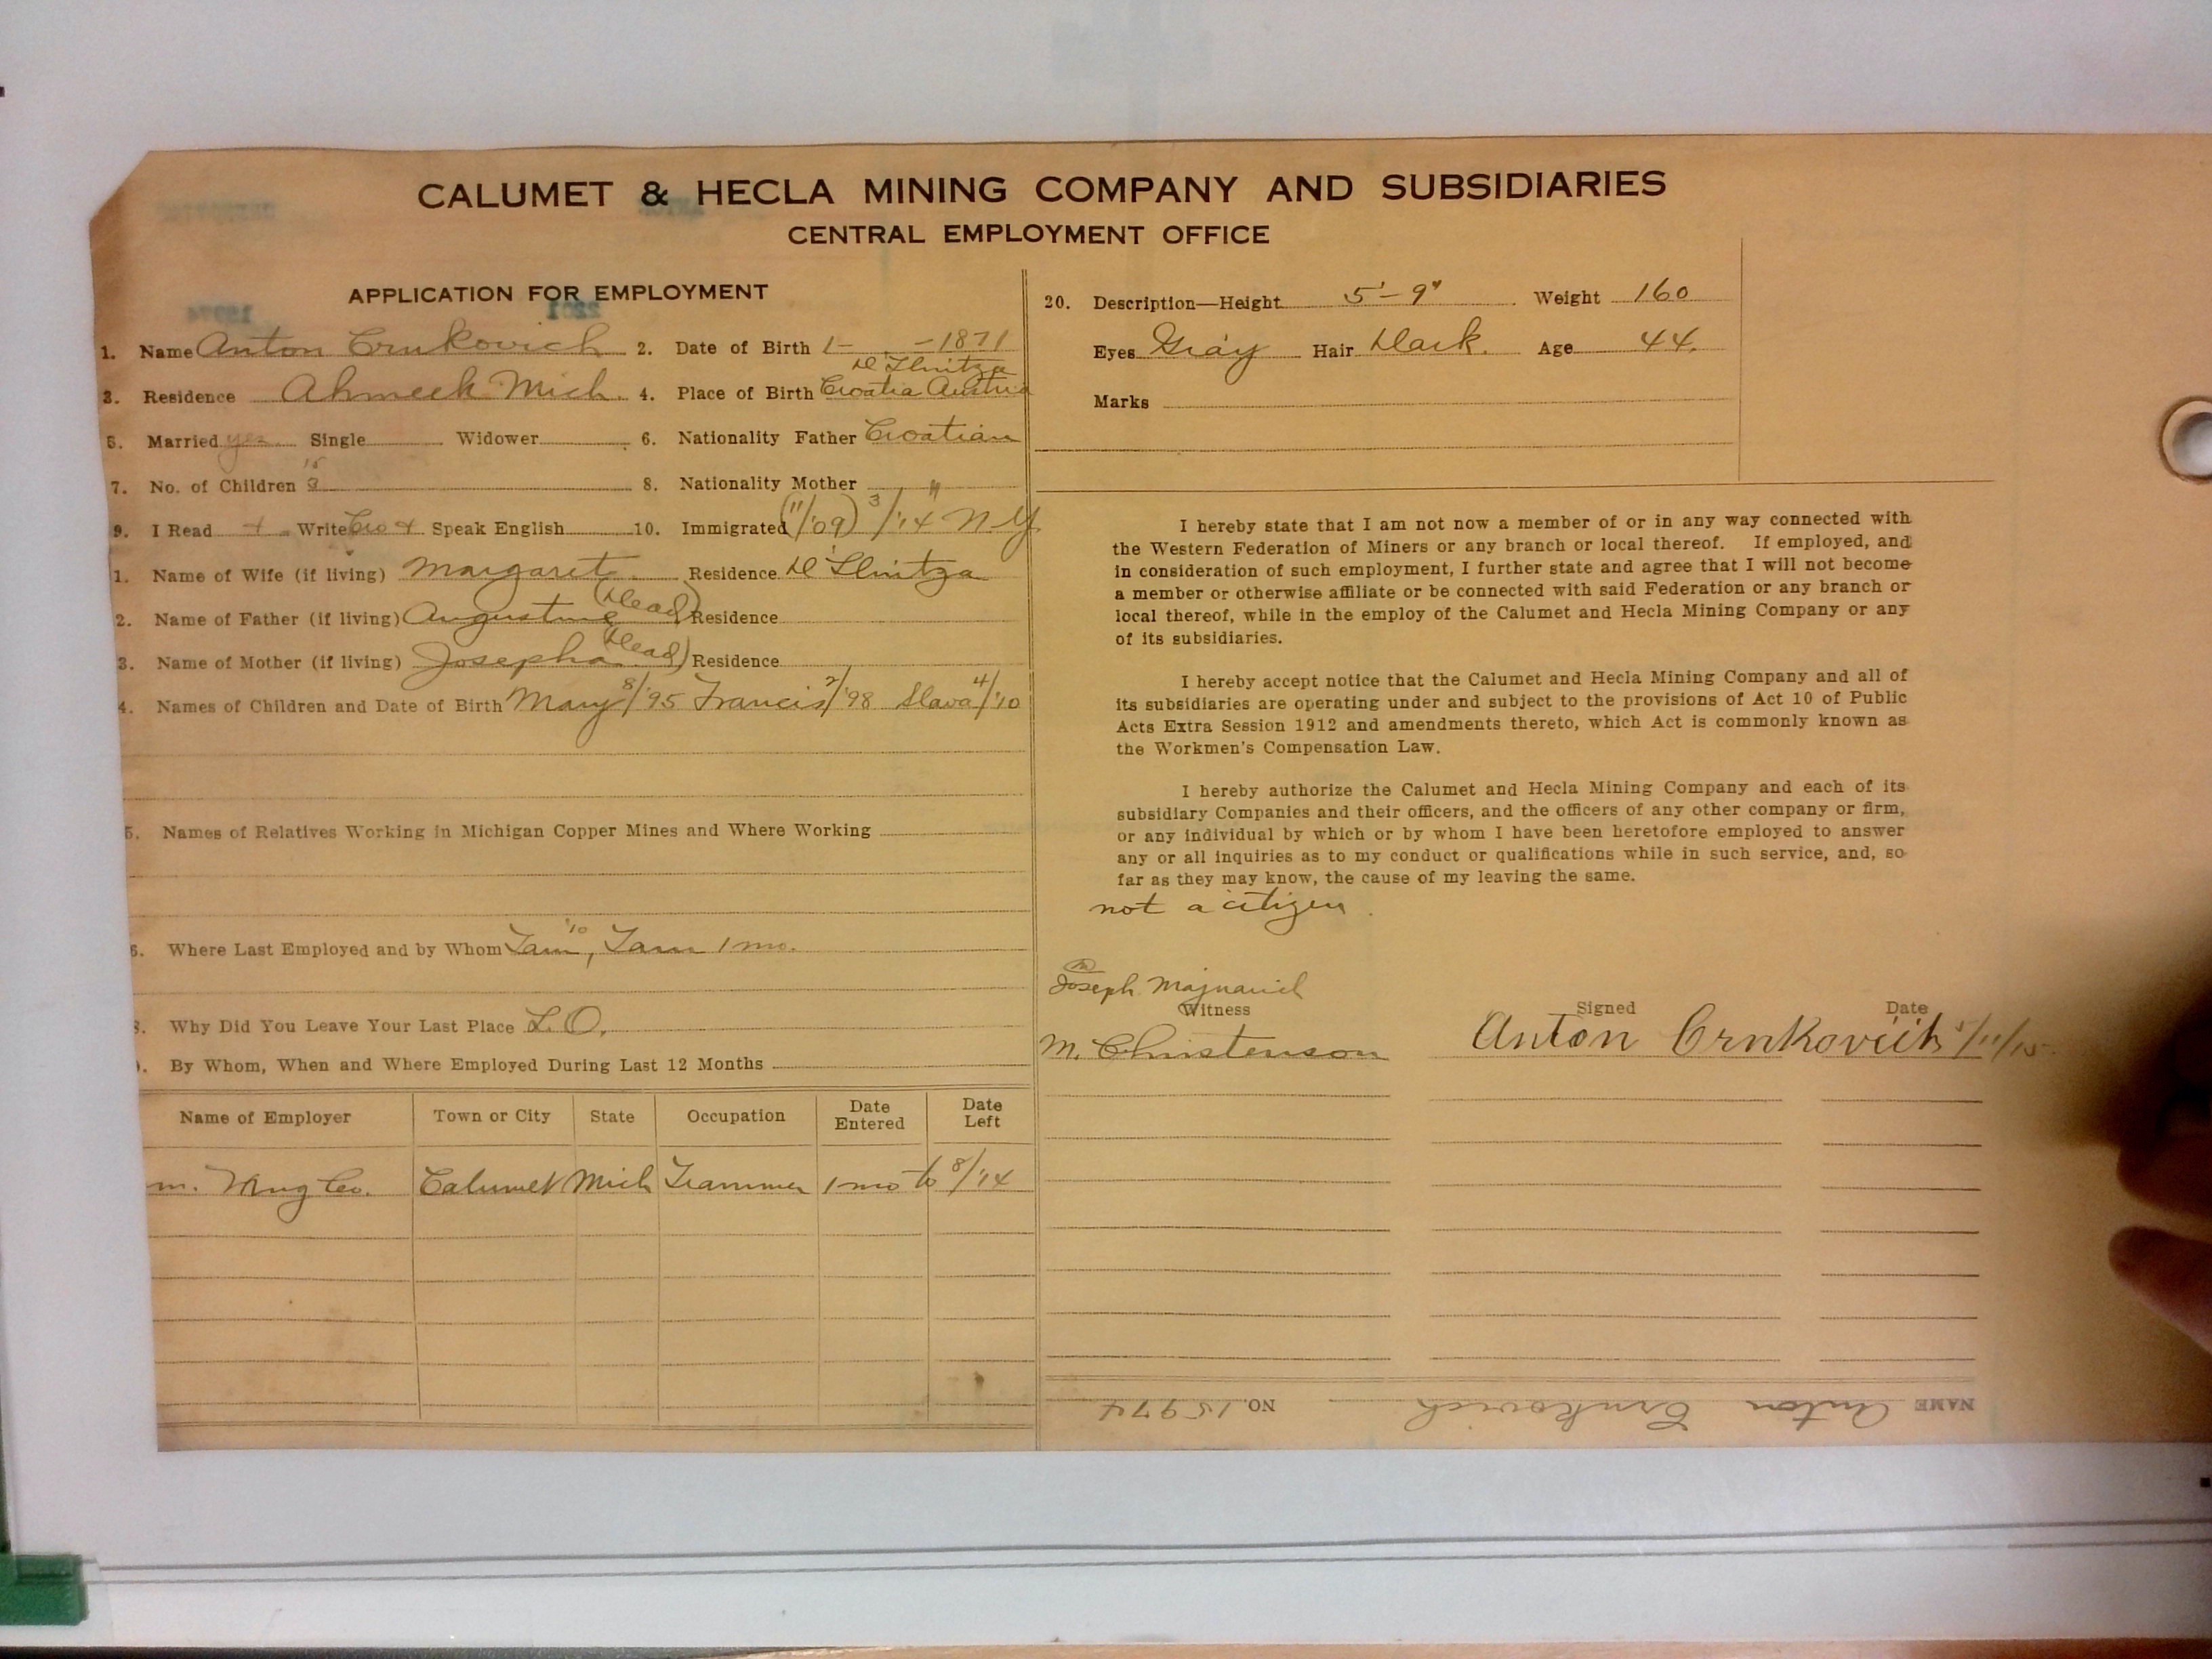 CALUMET & HECLA MINING COMPANY AND SUBSIDIARIES
CENTRAL EMPLOYMENT OFFICE
APPLICATION FOR EMPLOYMENT
1. Name Anton Crnkovich 2. Date of Birth 1- -1871
3. Residence Ahmeek Mich. 4. Place of Birth Croatia Austria
5. Married yes Single Widower 6. Nationality Father Croatian
7. No. of Children 8. Nationality Mother "
9. I Read + Write Cro + Speak English 10. Immigrated (11/'09) 3/'14 N.Y.
1. Name of Wife (if living) Margaret Residence
2. Name of Father (if living) Augustine (Dead) Residence
3. Name of Mother (if living) Josepha (Dead) Residence
4. Names of Children and Date of Birth Mary 8/'95 Francis 2/'98 Slava 4/'10
5. Names of Relatives Working in Michigan Copper Mines and Where Working
6. Where Last Employed and by Whom Tam '10, Tam 1 mo.
8. Why Did You Leave Your Last Place L.O.
). By Whom, When and Where Employed During Last 12 Months
Name of Employer Town or City State Occupation Date Entered Date Left
m. Mng Co. Calumet Mich Trammer 1 mo to 8/'14
20. Description—Height 5'-9" Weight 160
Eyes Gray Hair Dark. Age 44.
Marks
I hereby state that I am not now a member of or in any way connected with
the Western Federation of Miners or any branch or local thereof. If employed, and
in consideration of such employment, I further state and agree that I will not become
a member or otherwise affiliate or be connected with said Federation or any branch or
local thereof, while in the employ of the Calumet and Hecla Mining Company or any
of its subsidiaries.
I hereby accept notice that the Calumet and Hecla Mining Company and all of
its subsidiaries are operating under and subject to the provisions of Act 10 of Public
Acts Extra Session 1912 and amendments thereto, which Act is commonly known as
the Workmen's Compensation Law.
I hereby authorize the Calumet and Hecla Mining Company and each of its
subsidiary Companies and their officers, and the officers of any other company or firm,
or any individual by which or by whom I have been heretofore employed to answer
any or all inquiries as to my conduct or qualifications while in such service, and, so
far as they may know, the cause of my leaving the same.
not a citizen
Joseph
Witness Signed Date
M. Christenson Anton Crnkovich 5/11/15
NAME Anton Crnkovich NO. 15974